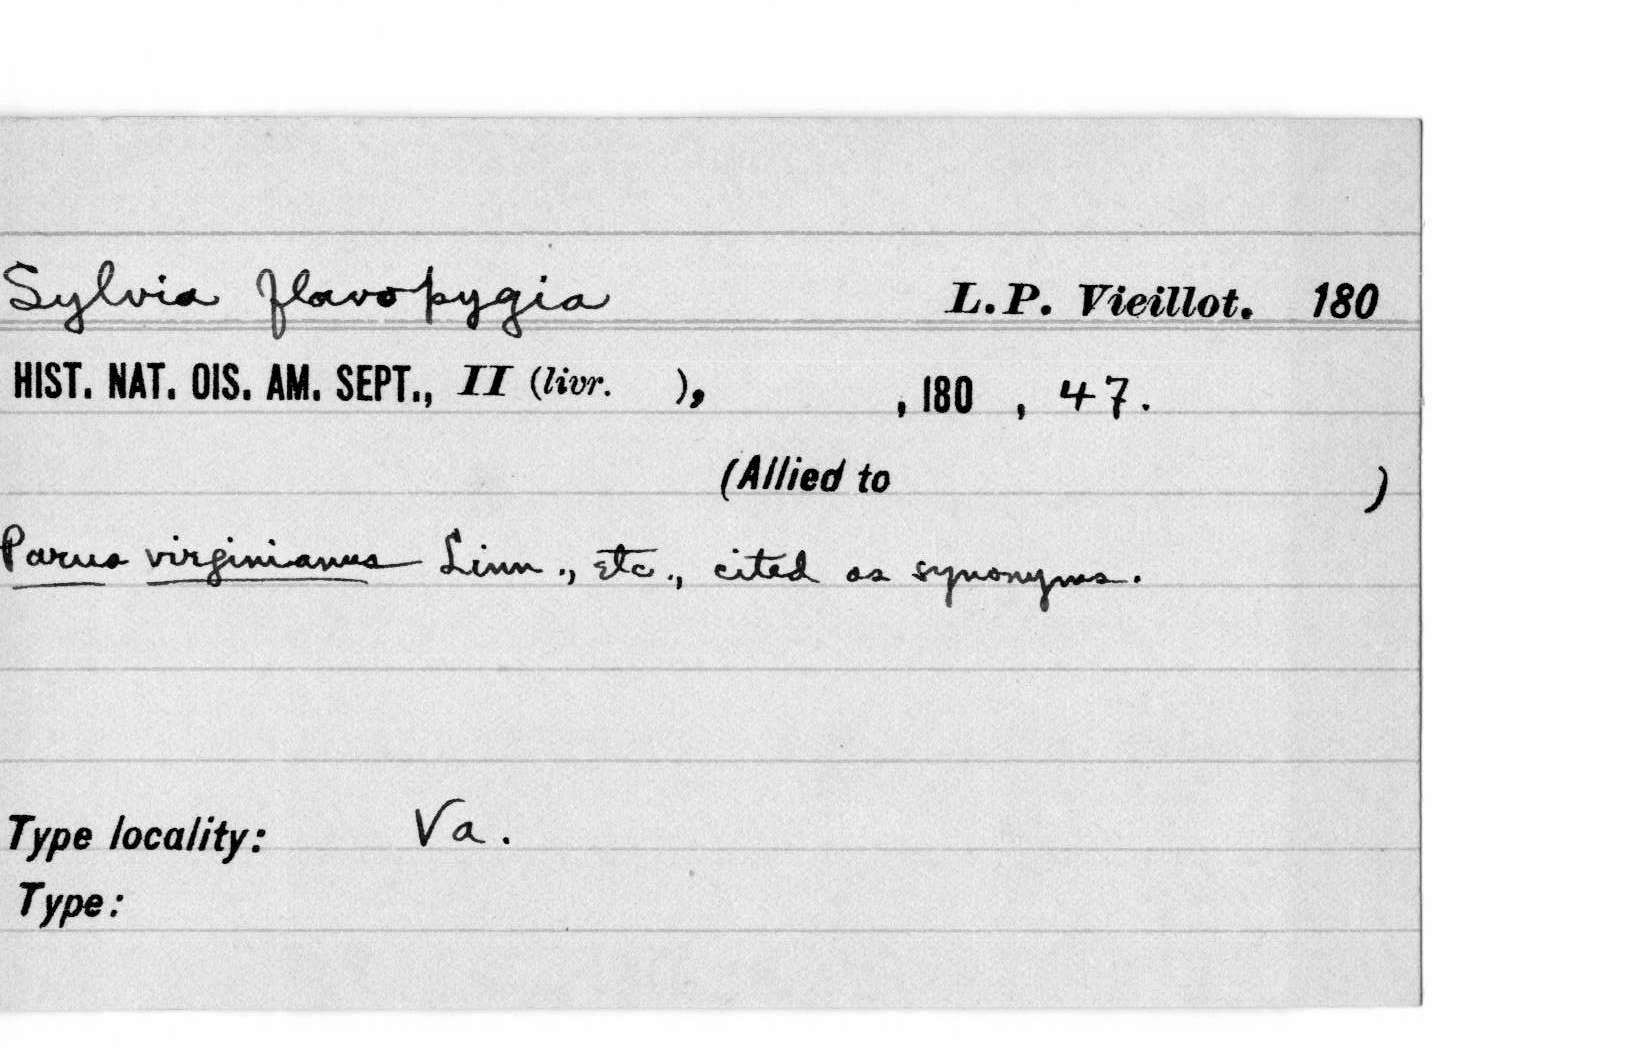 Sylvia flavopygia L. P. Vieillot. 180
HIST. NAT. OIS. AM. SEPT., II (livr. ), , 180 , 47.
(Allied to )
Parus virginianus Linn., etc., cited as synonyms.
Type locality: Va.
Type: